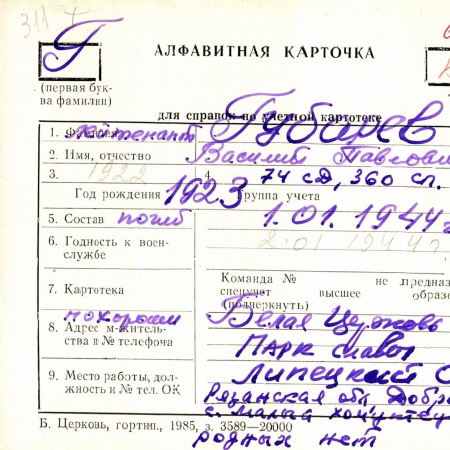 311
Г
АЛФАВИТНАЯ КАРТОЧКА
(первая бук-
ва фамилии)
для справок по учетной картотеке
1. Фамилия лейтенант Губарев
2. Имя, отчество Василий Павлови
3. 1922 4. 74 сд, 360 сп.
Год рождения 1923 Группа учета
5. Состав погиб 1.01.1944г
6. Годность к воен-
службе 2.01 1944г.
7. Картотека
Команда № не предназ
спецучет высшее образо
(подчеркнуть)
похорон Белая Церковь
8. Адрес м-житель-
ства и № телефона Парк славы
9. Место работы, дол-
жность и № тел. ОК
Липецкий
Рязанская обл Добр
с. Малый
родных нет
Б. Церковь, гортип., 1985, з. 3589—20000